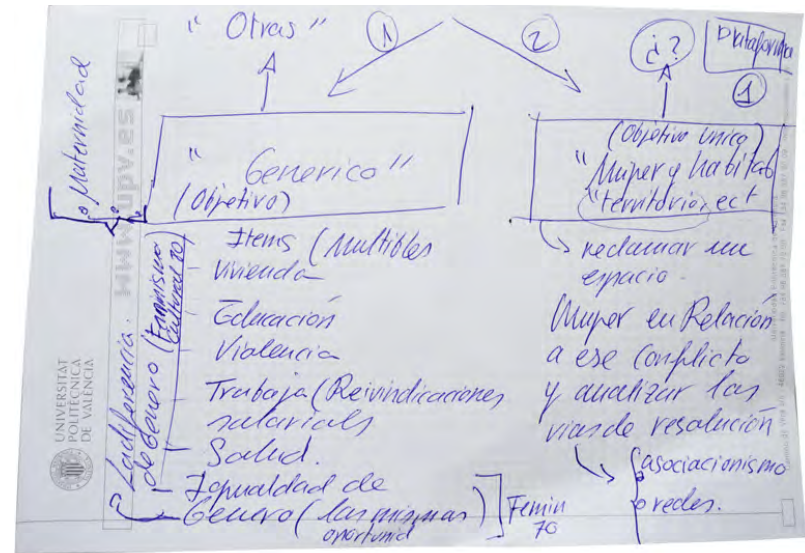 "Otras"
1
2
¿?
Plataforma
1
Maternidad
"Generico"
(Objetivo)
(Objetivo Unico)
"Mujer y habitat
"territorio, ect
Items (Multibles
- Vivienda
- Educación
- Violencia
- Trabaja (Reivindicaciones
salarials
- Salud.
- Igualdad de
Genero (las mismas
oportunid
Femin
70
La diferencia.
de Genero (Feminismo
cultural 70)
reclamar un
espacio.
Mujer en Relación
a ese Conflicto
y analizar las
vias de resolución
asociacionismo
o redes.
UNIVERSITAT
POLITÈCNICA
DE VALÈNCIA
www.upv.es